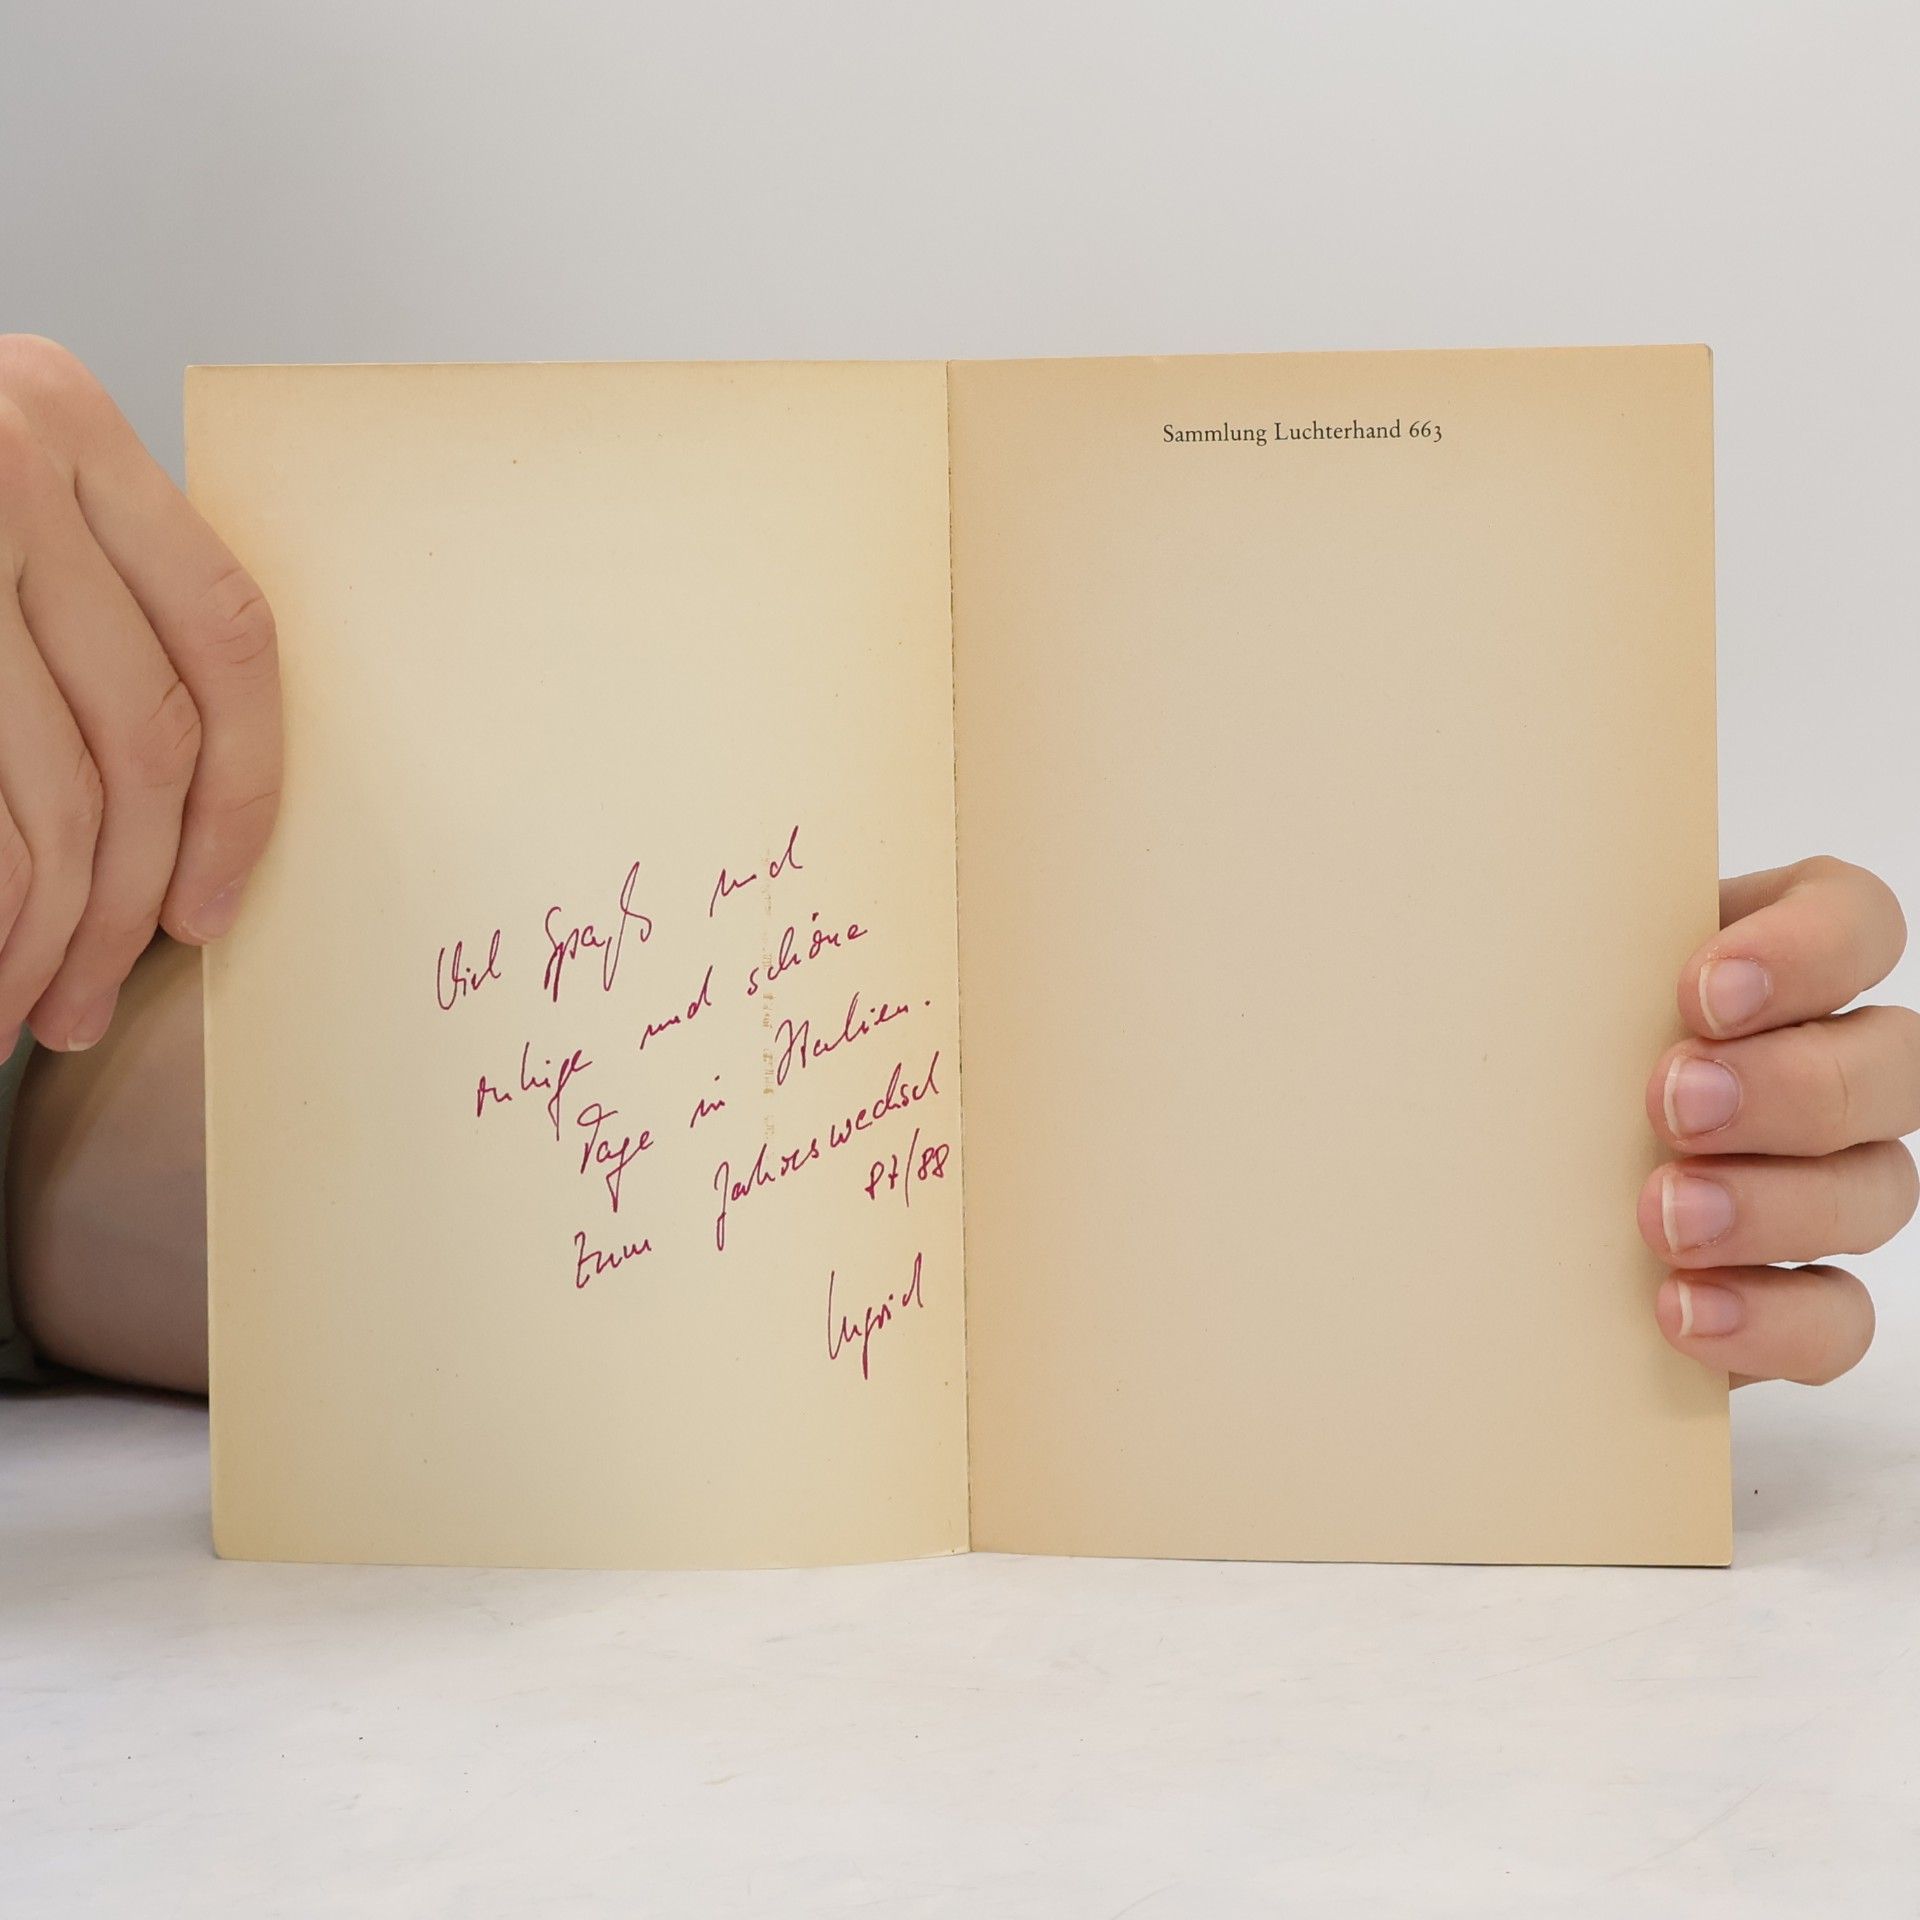 Viel Spaß und
ruhige und schöne
Tage in Italien.
Zum Jahreswechsel
87/88
Ingrid
Sammlung Luchterhand 663